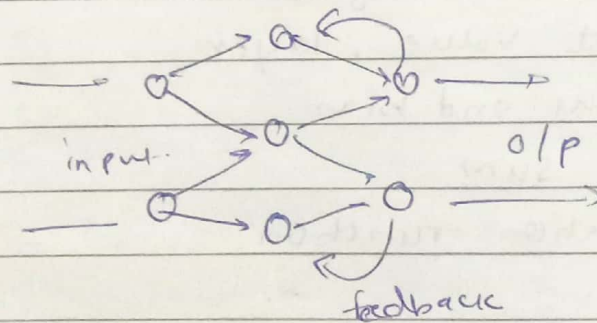 input.
o/p
feedback